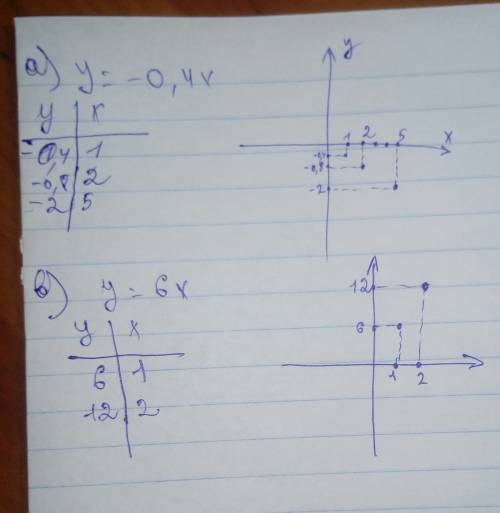 а) y = -0,4x
y x
-0,4 1
-0,8 2
-2 5
y
1 2 5 x
-0,4
-0,8
-2
б) y = 6x
y x
6 1
12 2
12
6
1 2